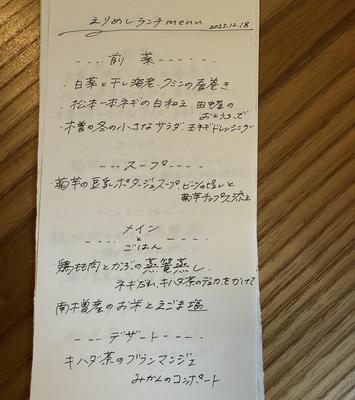 えりめしランチmenu 2025.12.18
前菜
・白菜と干し海老、クミンの春巻き
・松本一本ネギの白和え 田屋の
おとうふで
・木曽の冬の小さなサラダ 玉ネギドレッシング
スープ
菊芋の豆乳ポタージュスープ ビーツのピューレと
菊芋チップス添え
メイン
と
ごはん
鶏もも肉とかぶの蒸籠蒸し
ネギだれ、キハダ茶のデュカをかけて
南木曽産のお米とえごま塩
デザート
キハダ茶のブランマンジェ
みかんのコンポート